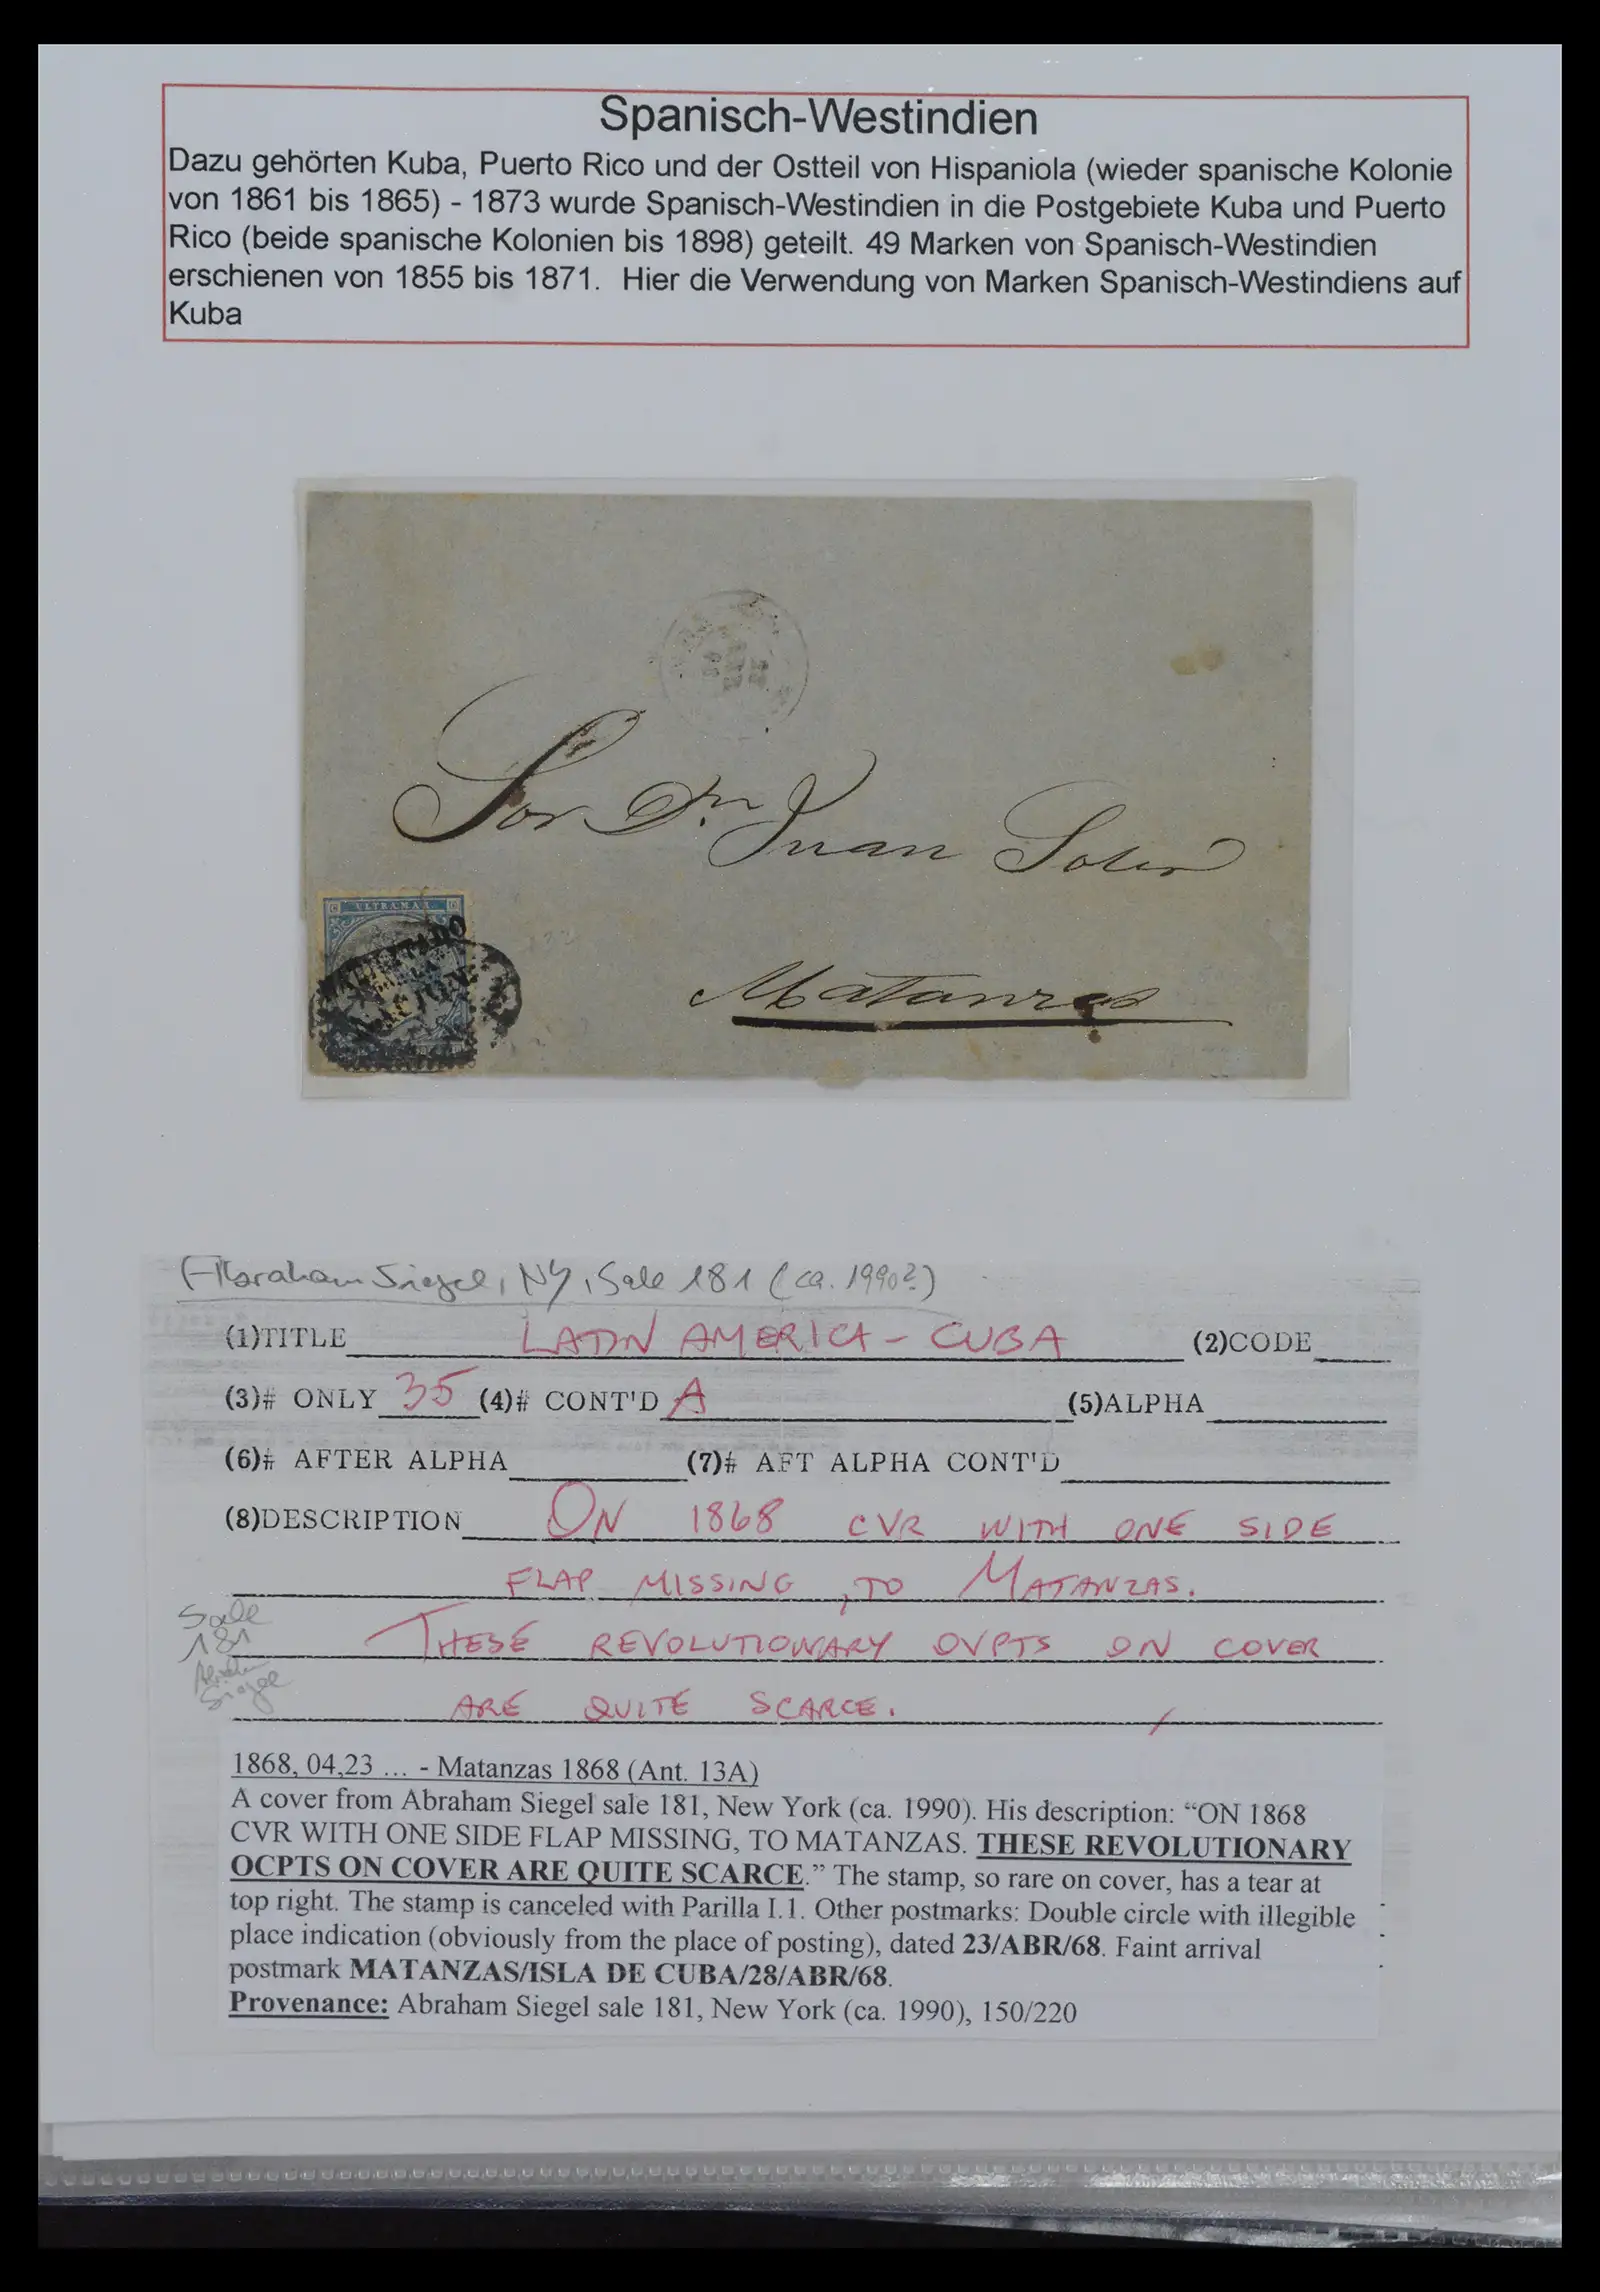 Spanisch-Westindien
Dazu gehörten Kuba, Puerto Rico und der Ostteil von Hispaniola (wieder spanische Kolonie
von 1861 bis 1865) - 1873 wurde Spanisch-Westindien in die Postgebiete Kuba und Puerto
Rico (beide spanische Kolonien bis 1898) geteilt. 49 Marken von Spanisch-Westindien
erschienen von 1855 bis 1871. Hier die Verwendung von Marken Spanisch-Westindiens auf
Kuba
Sor Dn Juan Soler
ULTRAMAR
Matanzas
Abraham Siegel, NY, Sale 181 (ca. 1990?)
(1)TITLE LATIN AMERICA - CUBA (2)CODE
(3)# ONLY 35 (4)# CONT'D A (5)ALPHA
(6)# AFTER ALPHA (7)# AFT ALPHA CONT'D
(8)DESCRIPTION ON 1868 CVR WITH ONE SIDE
FLAP MISSING, TO MATANZAS.
THESE REVOLUTIONARY OVPTS ON COVER
ARE QUITE SCARCE.
Sale
181
Abraham
Siegel
1868, 04,23 ... - Matanzas 1868 (Ant. 13A)
A cover from Abraham Siegel sale 181, New York (ca. 1990). His description: “ON 1868
CVR WITH ONE SIDE FLAP MISSING, TO MATANZAS. THESE REVOLUTIONARY
OCPTS ON COVER ARE QUITE SCARCE.” The stamp, so rare on cover, has a tear at
top right. The stamp is canceled with Parilla I.1. Other postmarks: Double circle with illegible
place indication (obviously from the place of posting), dated 23/ABR/68. Faint arrival
postmark MATANZAS/ISLA DE CUBA/28/ABR/68.
Provenance: Abraham Siegel sale 181, New York (ca. 1990), 150/220